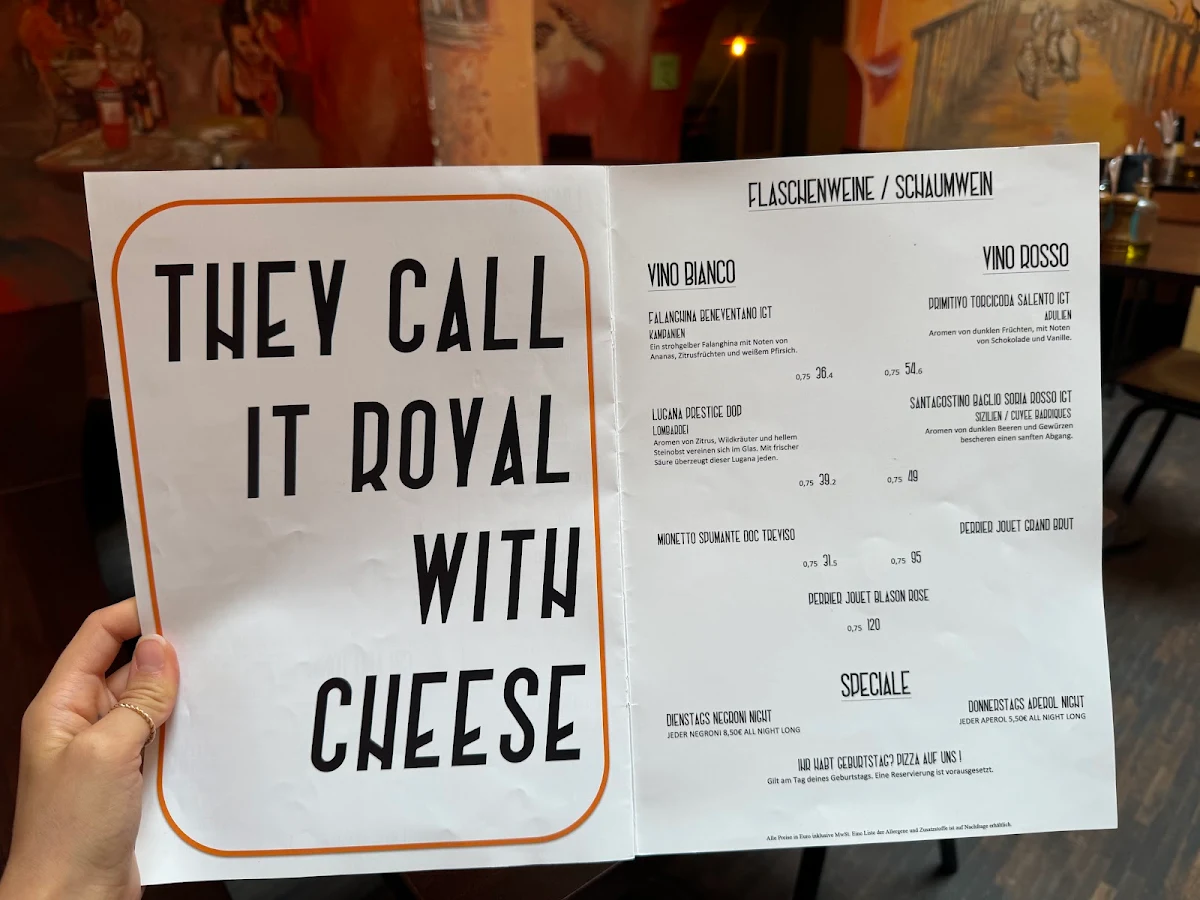 THEY CALL
IT ROYAL
WITH
CHEESE
FLASCHENWEINE / SCHAUMWEIN
VINO BIANCO
FALANGHINA BENEVENTANO IGT
KAMPANIEN
Ein strohgelber Falanghina mit Noten von
Ananas, Zitrusfrüchten und weißem Pfirsich.
0,75 36.4
LUGANA PRESTIGE DOP
LOMBARDEI
Aromen von Zitrus, Wildkräuter und hellem
Steinobst vereinen sich im Glas. Mit frischer
Säure überzeugt dieser Lugana jeden.
0,75 39.2
MIONETTO SPUMANTE DOC TREVISO
0,75 31.5
VINO ROSSO
PRIMITIVO TORCICODA SALENTO IGT
APULIEN
Aromen von dunklen Früchten, mit Noten
von Schokolade und Vanille.
0,75 54.6
SANTAGOSTINO BAGLIO SORIA ROSSO IGT
SIZILIEN / CUVEE BARRIQUES
Aromen von dunklen Beeren und Gewürzen
bescheren einen sanften Abgang.
0,75 49
PERRIER JOUET GRAND BRUT
0,75 95
PERRIER JOUET BLASON ROSE
0,75 120
SPECIALE
DIENSTAGS NEGRONI NIGHT
JEDER NEGRONI 8,50€ ALL NIGHT LONG
DONNERSTAGS APEROL NIGHT
JEDER APEROL 5,50€ ALL NIGHT LONG
IHR HABT GEBURTSTAG? PIZZA AUF UNS !
Gilt am Tag deines Geburtstags. Eine Reservierung ist vorausgesetzt.
Alle Preise in Euro inklusive MwSt. Eine Liste der Allergene und Zusatzstoffe ist auf Nachfrage erhältlich.